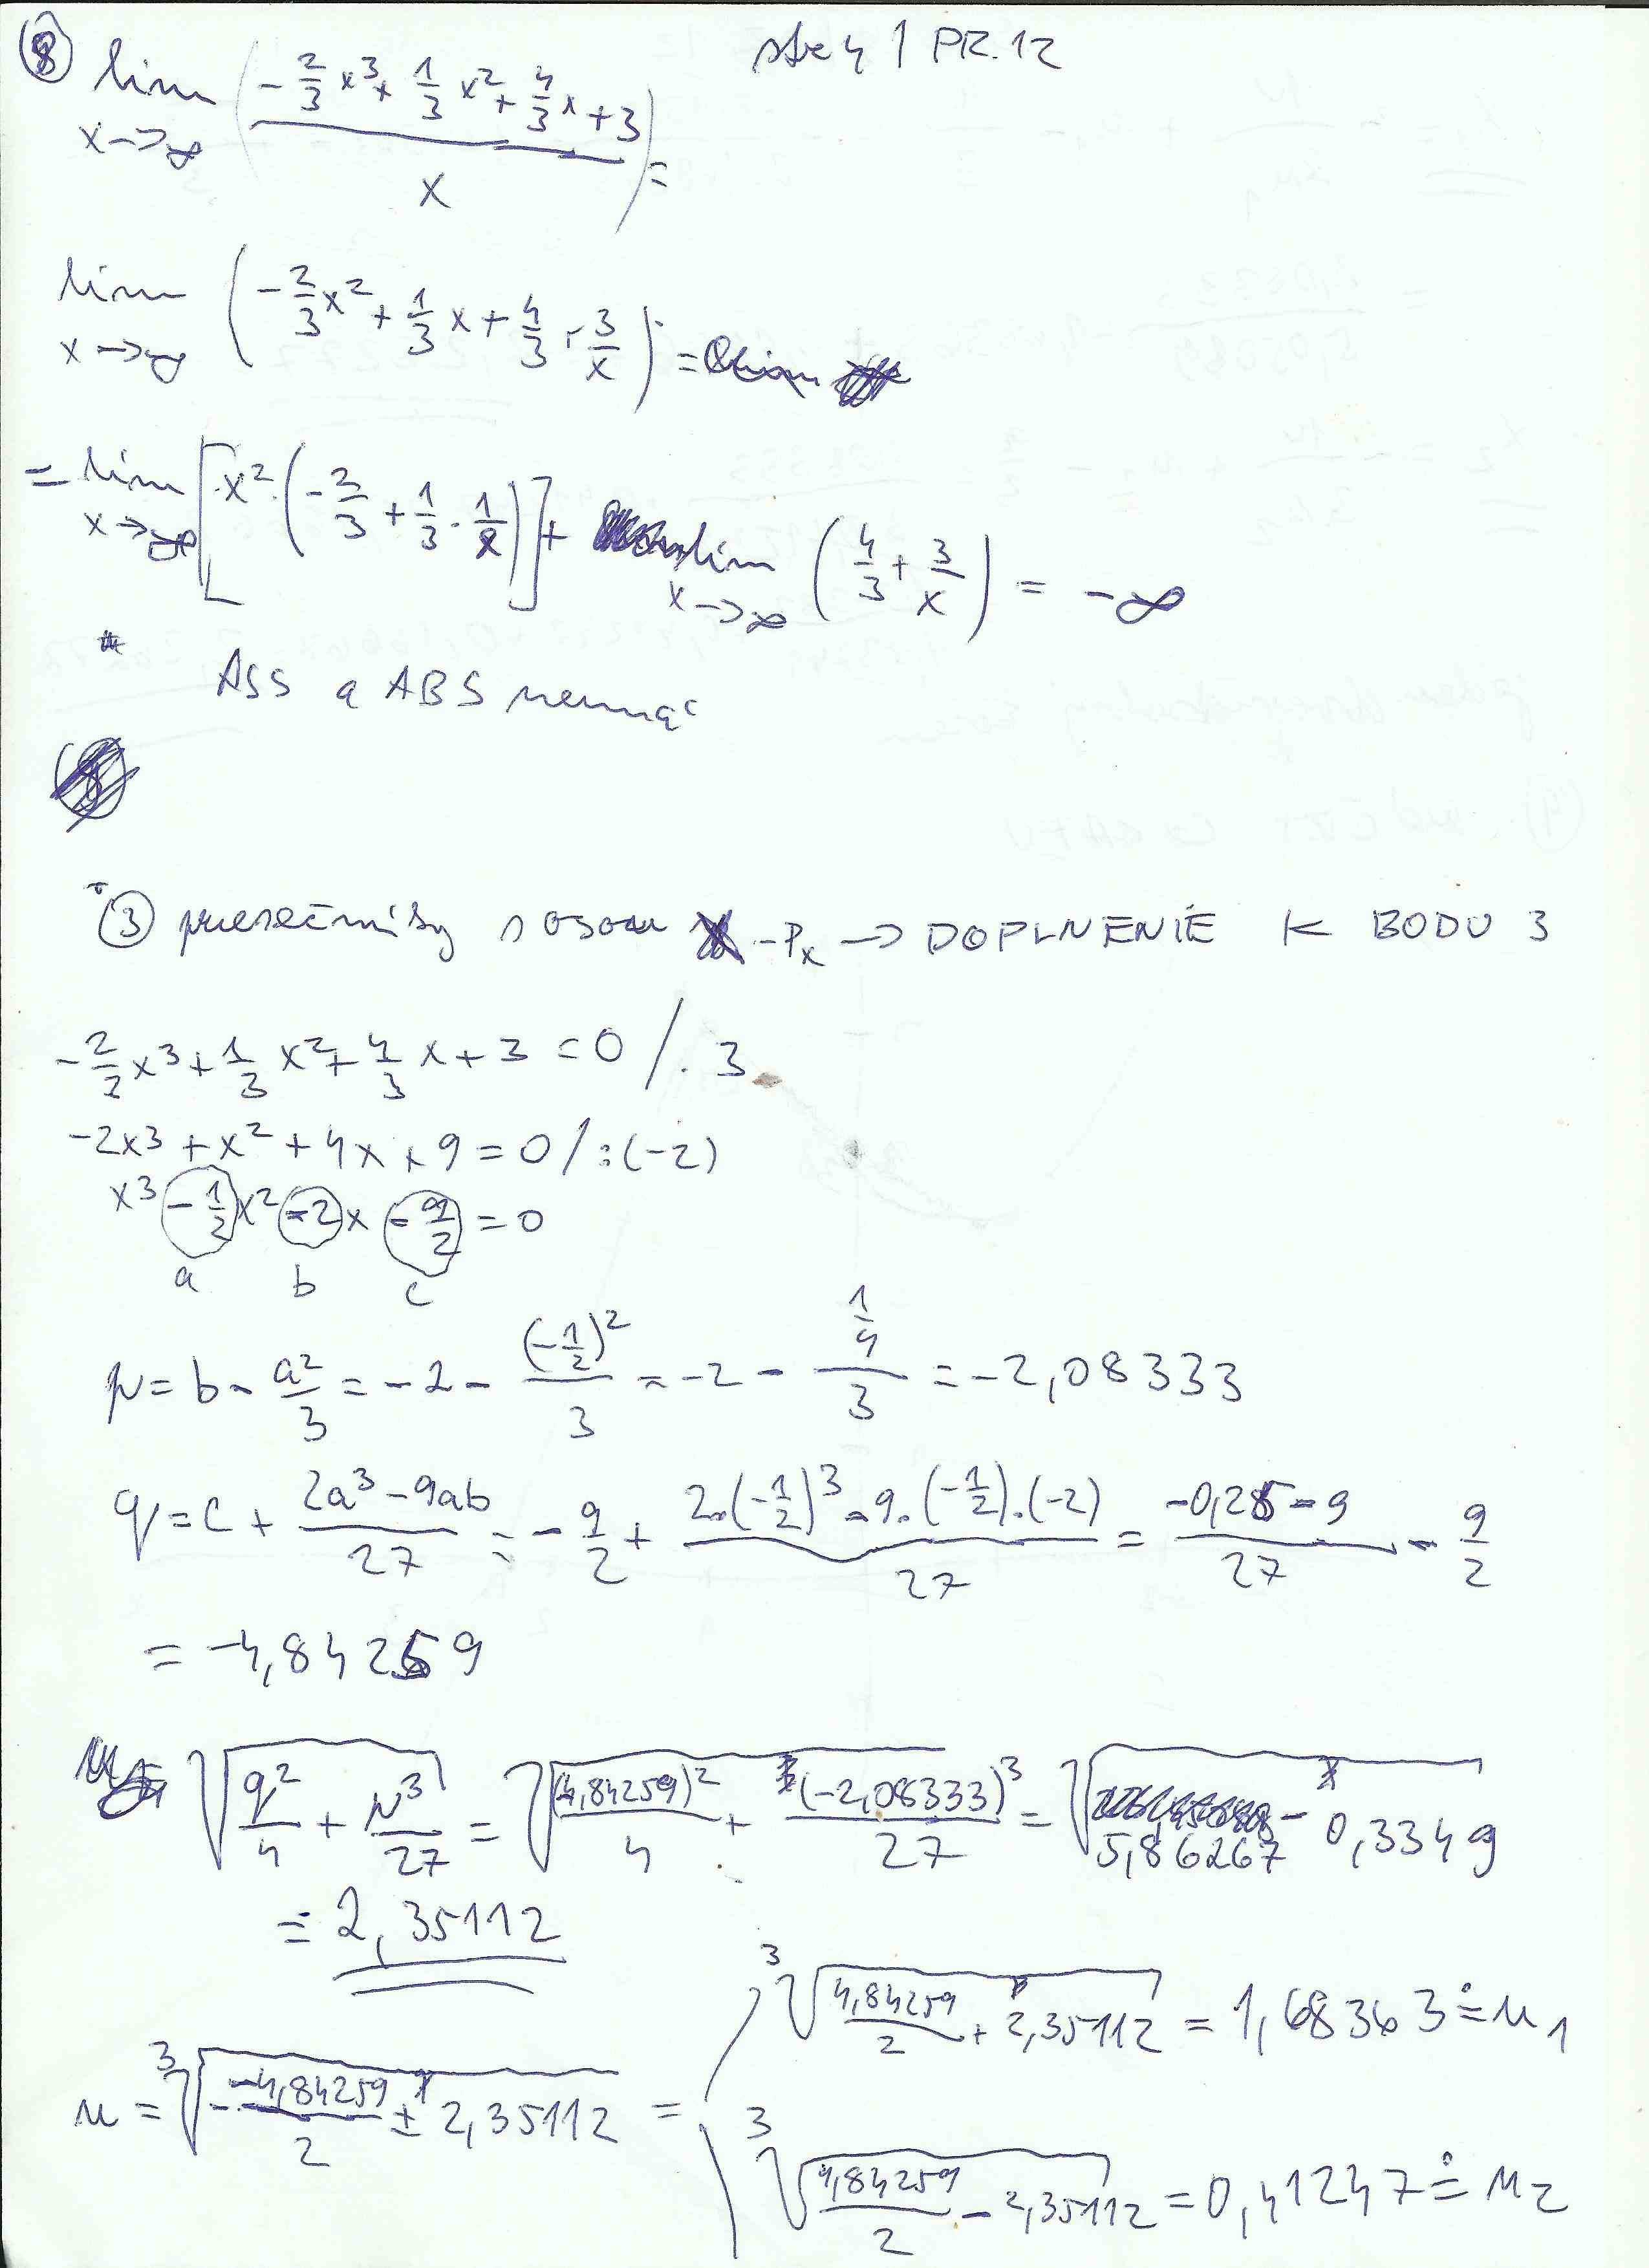 str 4 | PR. 12
⑧ lim x→∞ ( (-2/3 x³ + 1/3 x² + 4/3 x + 3) / x ) =
lim x→∞ ( -2/3 x² + 1/3 x + 4/3 + 3/x ) =
= lim x→∞ [ x² · ( -2/3 + 1/3 · 1/x ) ] + lim x→∞ ( 4/3 + 3/x ) = -∞
ASS a ABS nemá
③ priesečníky s osou x - Px → DOPLNENIE K BODU 3
-2/3 x³ + 1/3 x² + 4/3 x + 3 = 0 / · 3
-2x³ + x² + 4x + 9 = 0 / : (-2)
x³ - 1/2 x² - 2x - 9/2 = 0
a b c
p = b - a²/3 = -2 - (-1/2)²/3 = -2 - (1/4)/3 = -2,08333
q = c + (2a³ - 9ab)/27 = -9/2 + (2·(-1/2)³ - 9·(-1/2)·(-2))/27 = (-0,25 - 9)/27 - 9/2
= -4,84259
√(q²/4 + p³/27) = √((4,84259)²/4 + (-2,08333)³/27) = √(5,86267 - 0,3349)
= 2,35112
u = ³√(- -4,84259/2 ± 2,35112) =
³√(4,84259/2 + 2,35112) = 1,68363 ≐ u₁
³√(4,84259/2 - 2,35112) = 0,41247 ≐ u₂